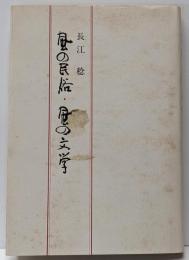 長江 稔
風の民俗・風の文学